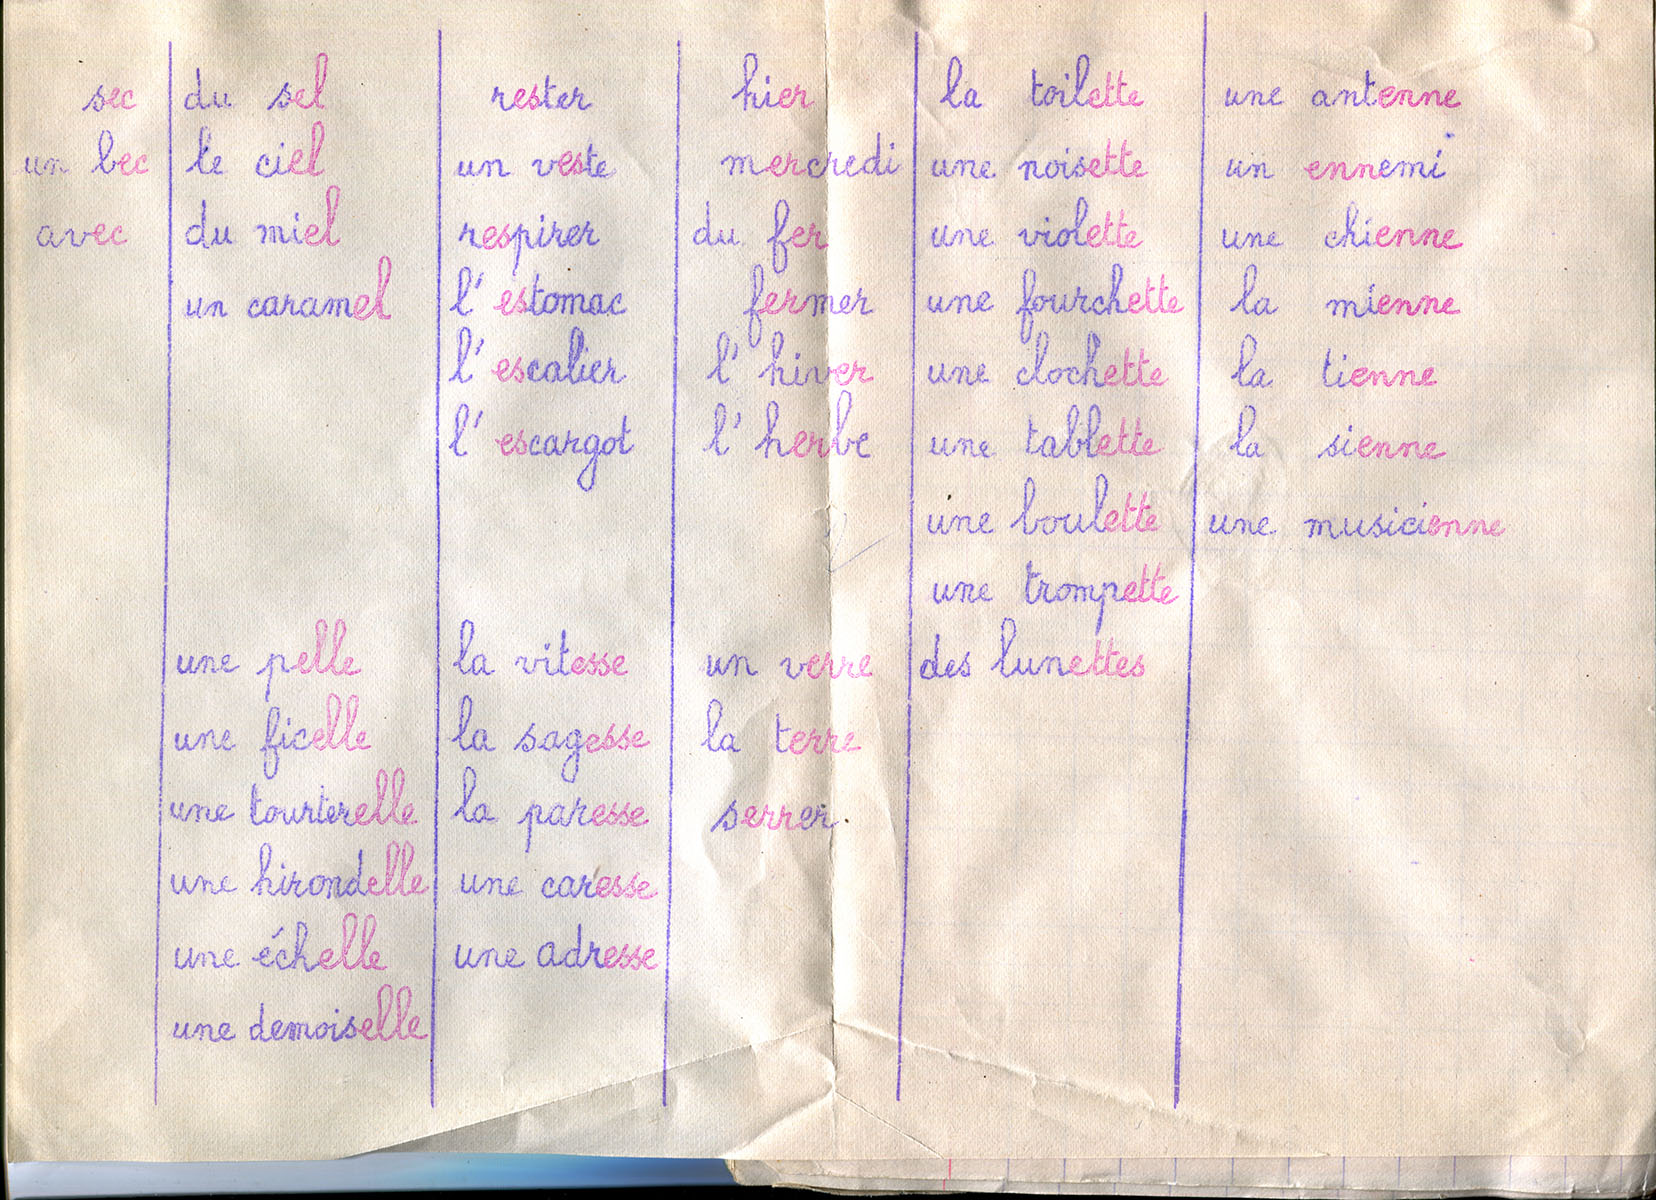 sec du sel rester hier la toilette une antenne
un bec le ciel un veste mercredi une noisette un ennemi
avec du miel respirer du fer une violette une chienne
un caramel l'estomac fermer une fourchette la mienne
l'escalier l'hiver une clochette la tienne
l'escargot l'herbe une tablette la sienne
une boulette une musicienne
une trompette
une pelle la vitesse un verre des lunettes
une ficelle la sagesse la terre
une tourterelle la paresse serrer
une hirondelle une caresse
une échelle une adresse
une demoiselle